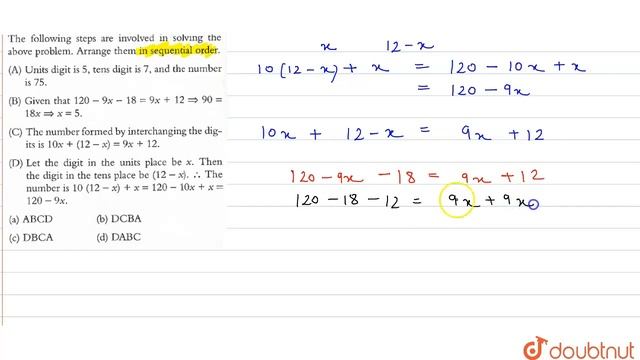 The following steps are involved in solving the
above problem. Arrange them in sequential order.
(A) Units digit is 5, tens digit is 7, and the number
is 75.
(B) Given that 120 − 9x − 18 = 9x + 12 ⇒ 90 =
18x ⇒ x = 5.
(C) The number formed by interchanging the dig-
its is 10x + (12 − x) = 9x + 12.
(D) Let the digit in the units place be x. Then
the digit in the tens place be (12 − x). ∴ The
number is 10 (12 − x) + x = 120 − 10x + x =
120 − 9x.
(a) ABCD (b) DCBA
(c) DBCA (d) DABC
x 12 − x
10(12 − x) + x = 120 − 10x + x
= 120 − 9x
10x + 12 − x = 9x + 12
120 − 9x − 18 = 9x + 12
120 − 18 − 12 = 9x + 9x
doubtnut